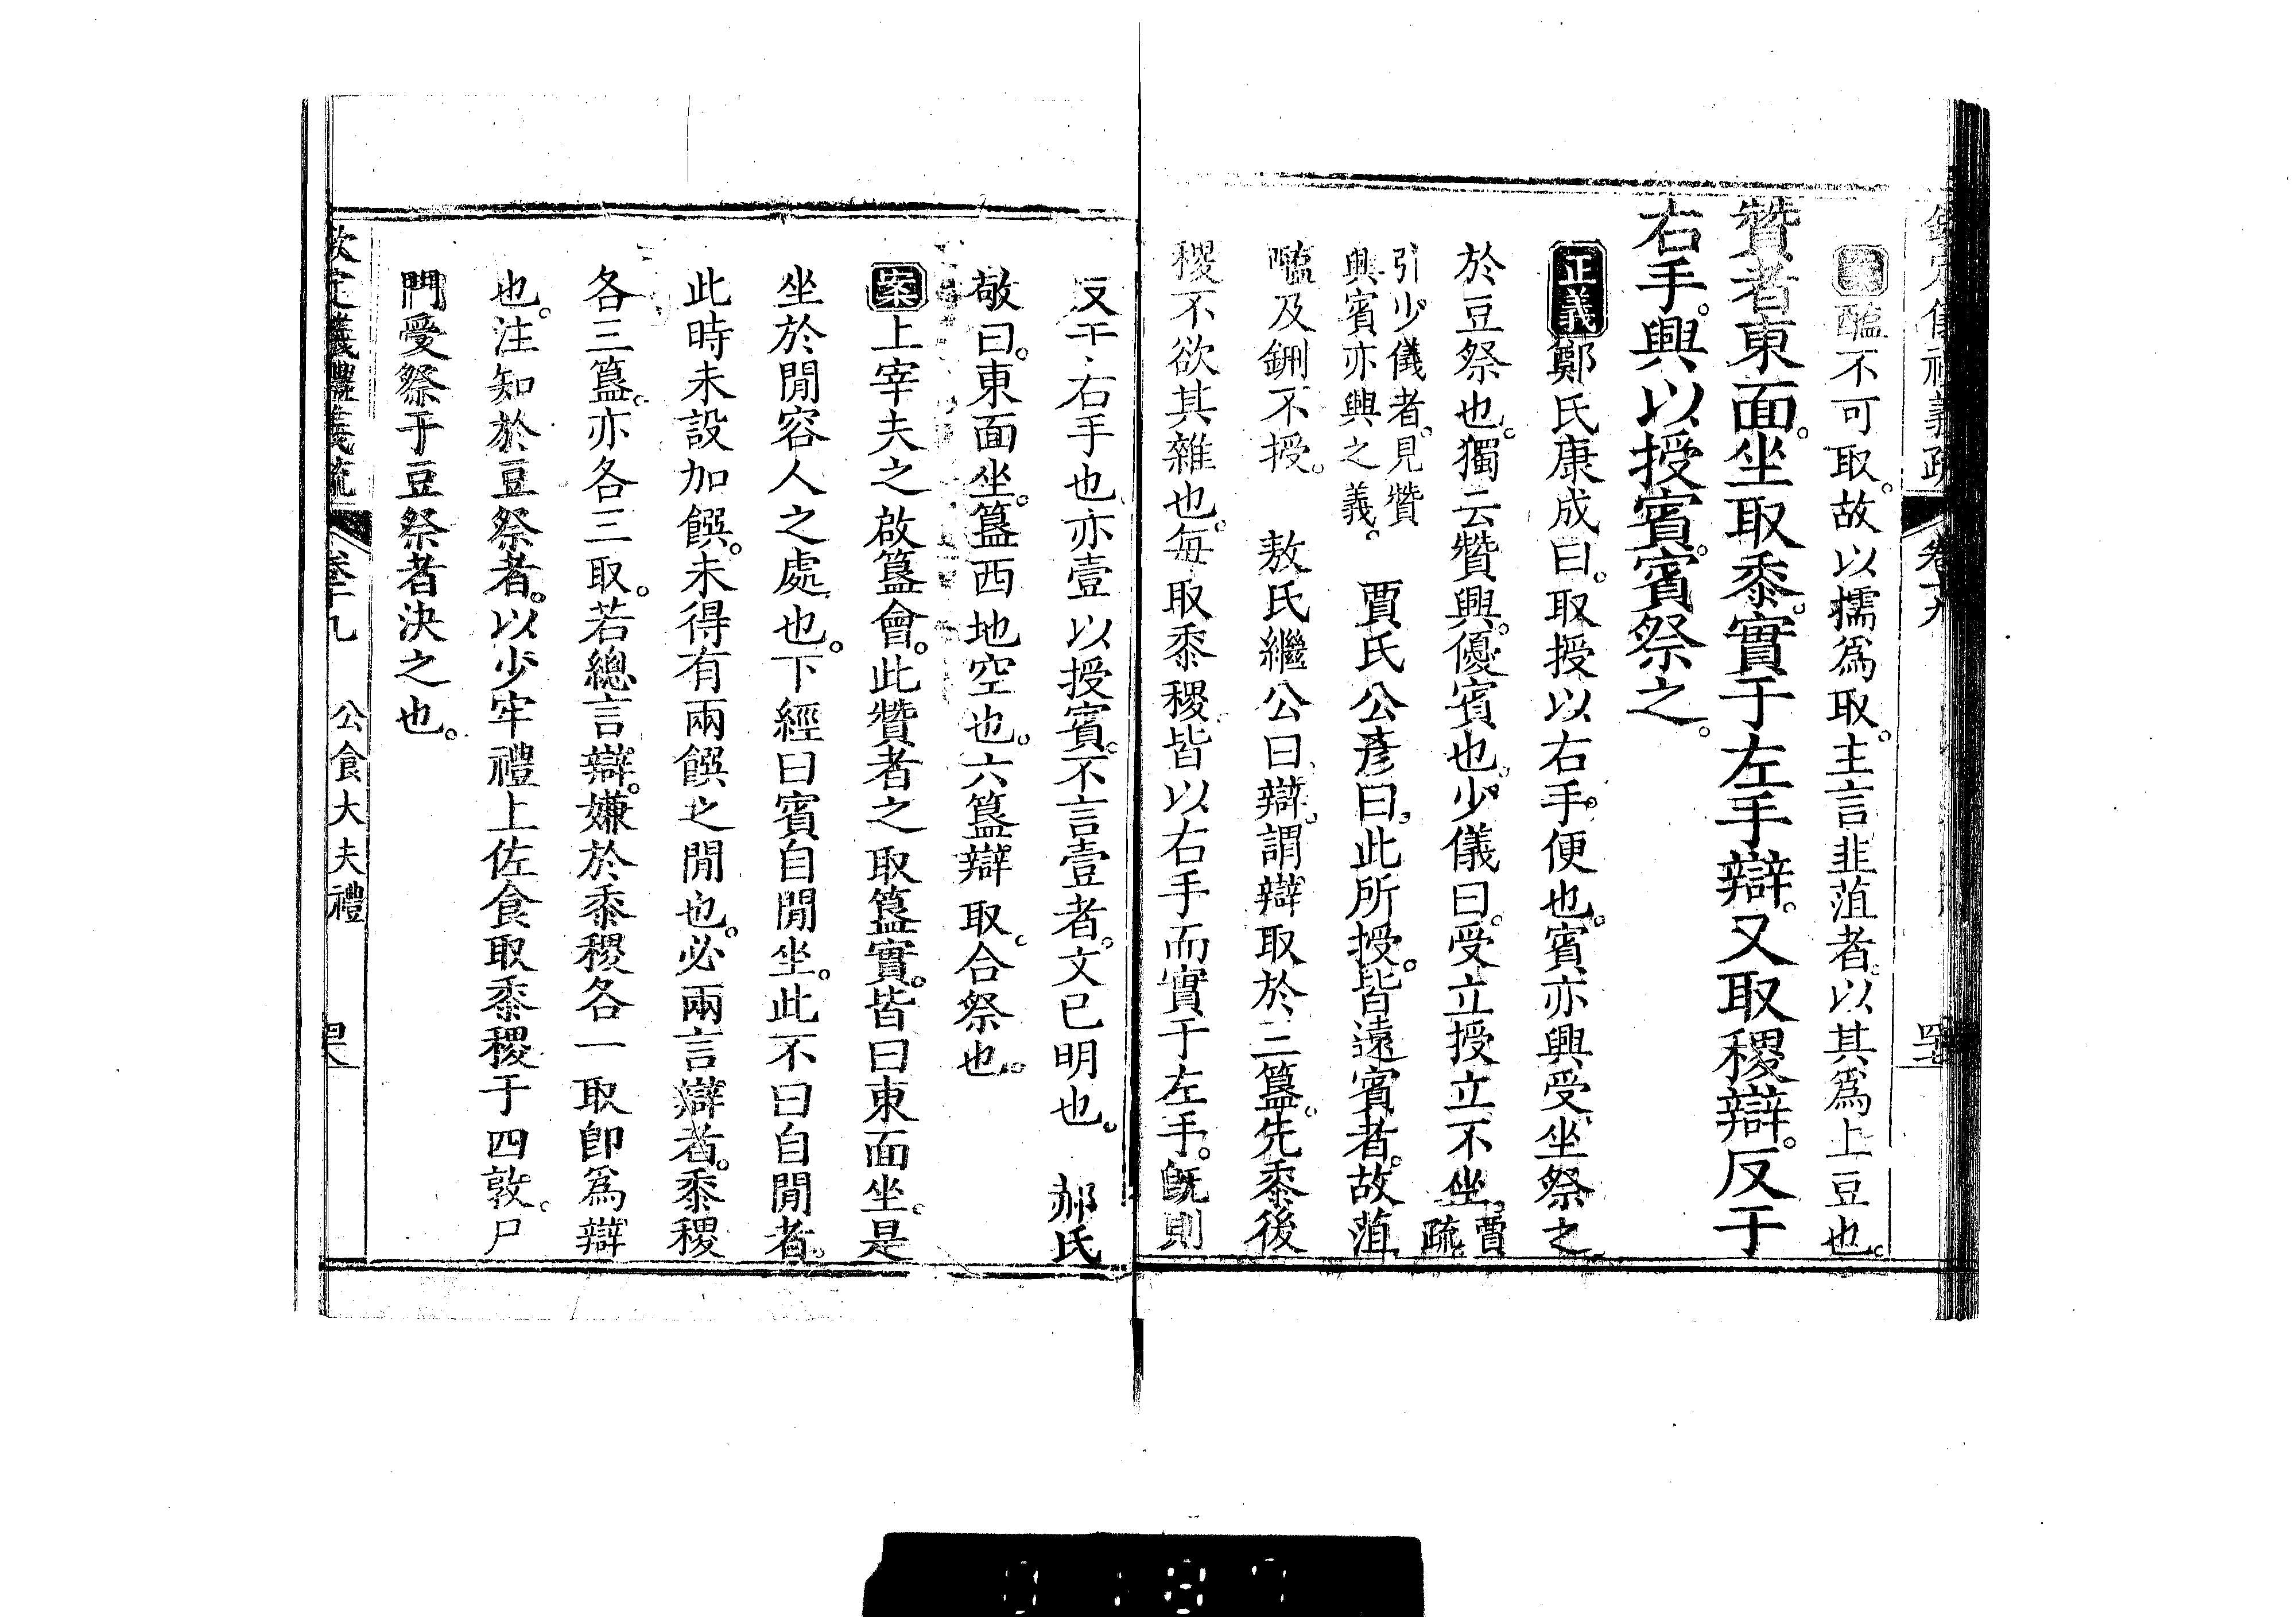 案醢不可取。故以擩爲取。主言韭菹者。以其爲上豆也。
贊者東面。坐取黍。實于左手辯。又取稷辯。反于
右手。興以授賓。賓祭之。
正義鄭氏康成曰。取授以右手。便也。賓亦興受。坐祭之
於豆祭也。獨云贊興。優賓也。少儀曰。受立授立不坐。賈疏
引少儀者。見贊
興賓亦興之義。
賈氏公彥曰。此所授。皆遠賓者。故菹
醢及鉶不授。 敖氏繼公曰。辯。謂辯取於三簋。先黍後
稷不欲其雜也。每取黍稷。皆以右手而實于左手。旣則
反于右手也。亦壹以授賓。不言壹者。文已明也。 郝氏
敬曰。東面坐。簋西地空也。六簋辯取。合祭也。
案上宰夫之啟簋會。此贊者之取簋實。皆曰東面坐。是
坐於閒容人之處也。下經曰賓自閒坐。此不曰自閒者。
此時未設加饌。未得有兩饌之閒也。必兩言辯者。黍稷
各三簋。亦各三取。若總言辯。嫌於黍稷各一取卽爲辯
也。注知於豆祭者。以少牢禮上佐食取黍稷于四敦。尸
受祭于豆祭者決之也。
欽定儀禮義疏 卷十九 公食大夫禮